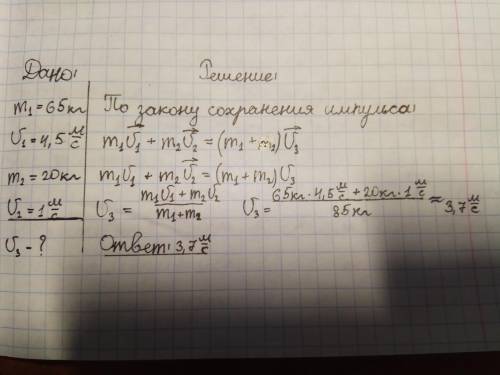 Дано:
Решение:
m₁ = 65кг
υ₁ = 4,5 м/с
m₂ = 20кг
υ₂ = 1 м/с
υ₃ - ?
По закону сохранения импульса:
m₁υ⃗₁ + m₂υ⃗₂ = (m₁ + m₂)υ⃗₃
m₁υ₁ + m₂υ⃗₂ = (m₁ + m₂)υ₃
υ₃ = (m₁υ₁ + m₂υ₂)/(m₁ + m₂) υ₃ = (65кг · 4,5 м/с + 20кг · 1 м/с)/85кг ≈ 3,7 м/с
Ответ: 3,7 м/с